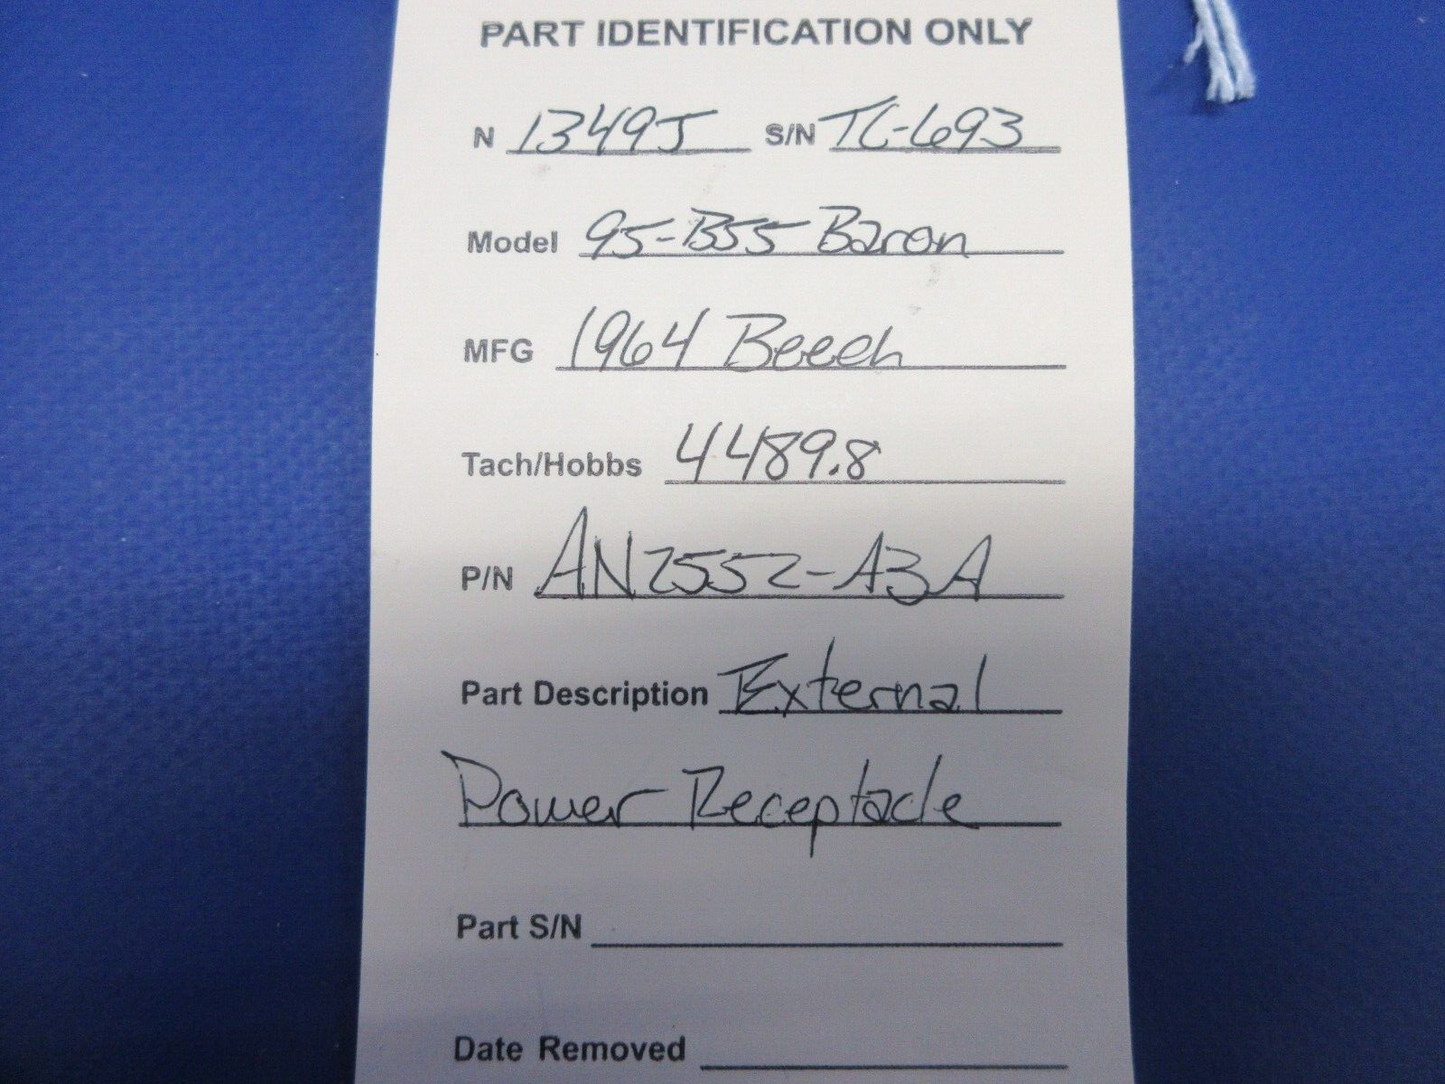 PART IDENTIFICATION ONLY
N 1349J S/N TC-693
Model 95-B55 Baron
MFG 1964 Beech
Tach/Hobbs 4489.8
P/N AN2552-A3A
Part Description External
Power Receptacle
Part S/N
Date Removed